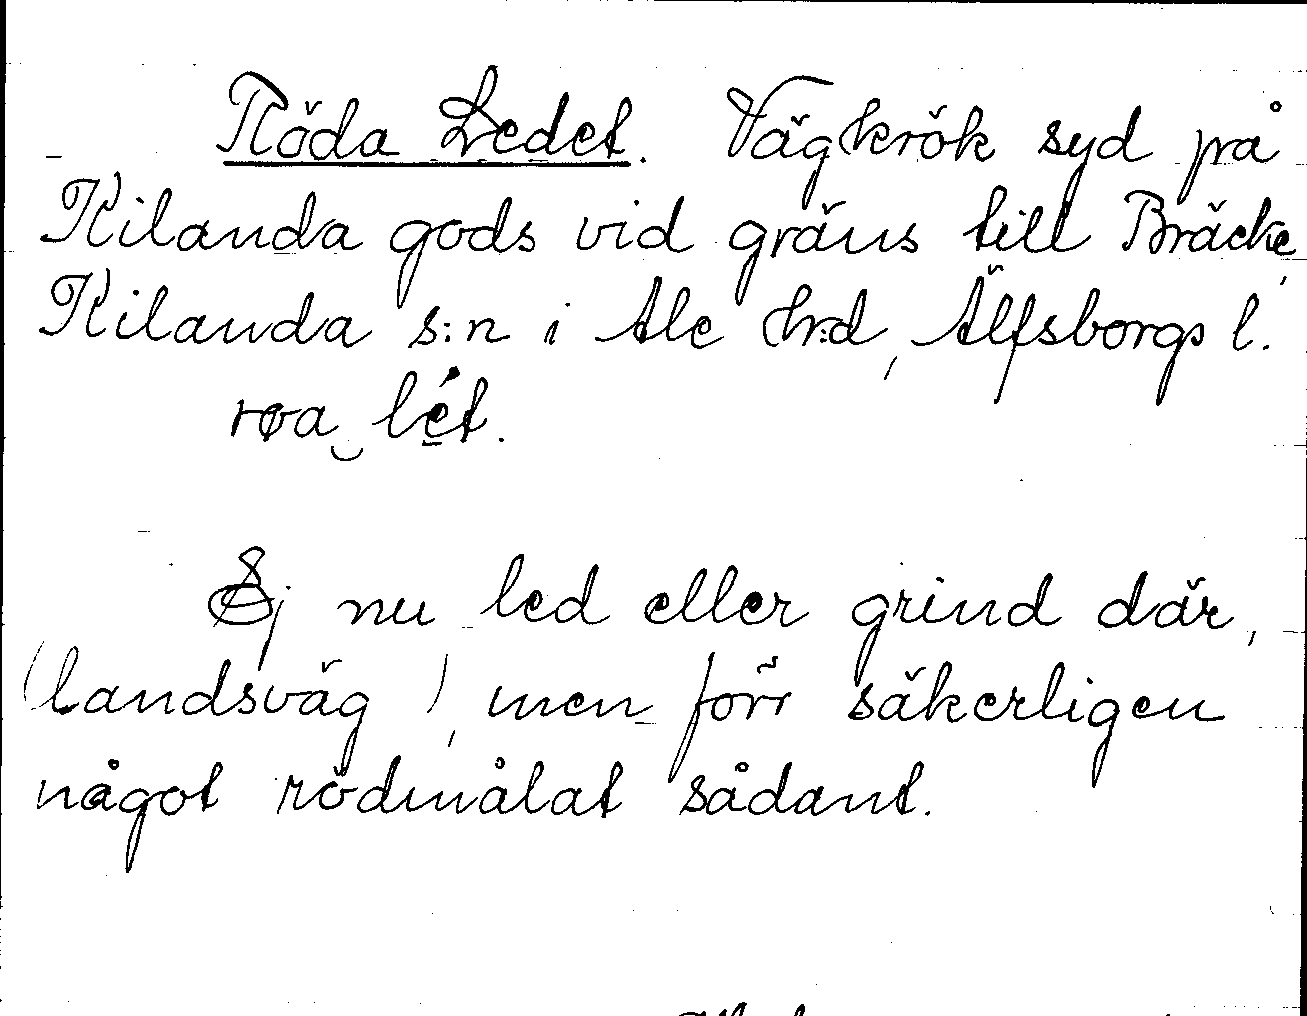 Röda Ledet. Vägkrök syd på
Kilanda gods vid gräns till Bräcke,
Kilanda s:n i Ale hrd, Älfsborgs l.
røa‿lét.
Ej nu led eller grind där,
(landsväg), men förr säkerligen
något rödmålat sådant.